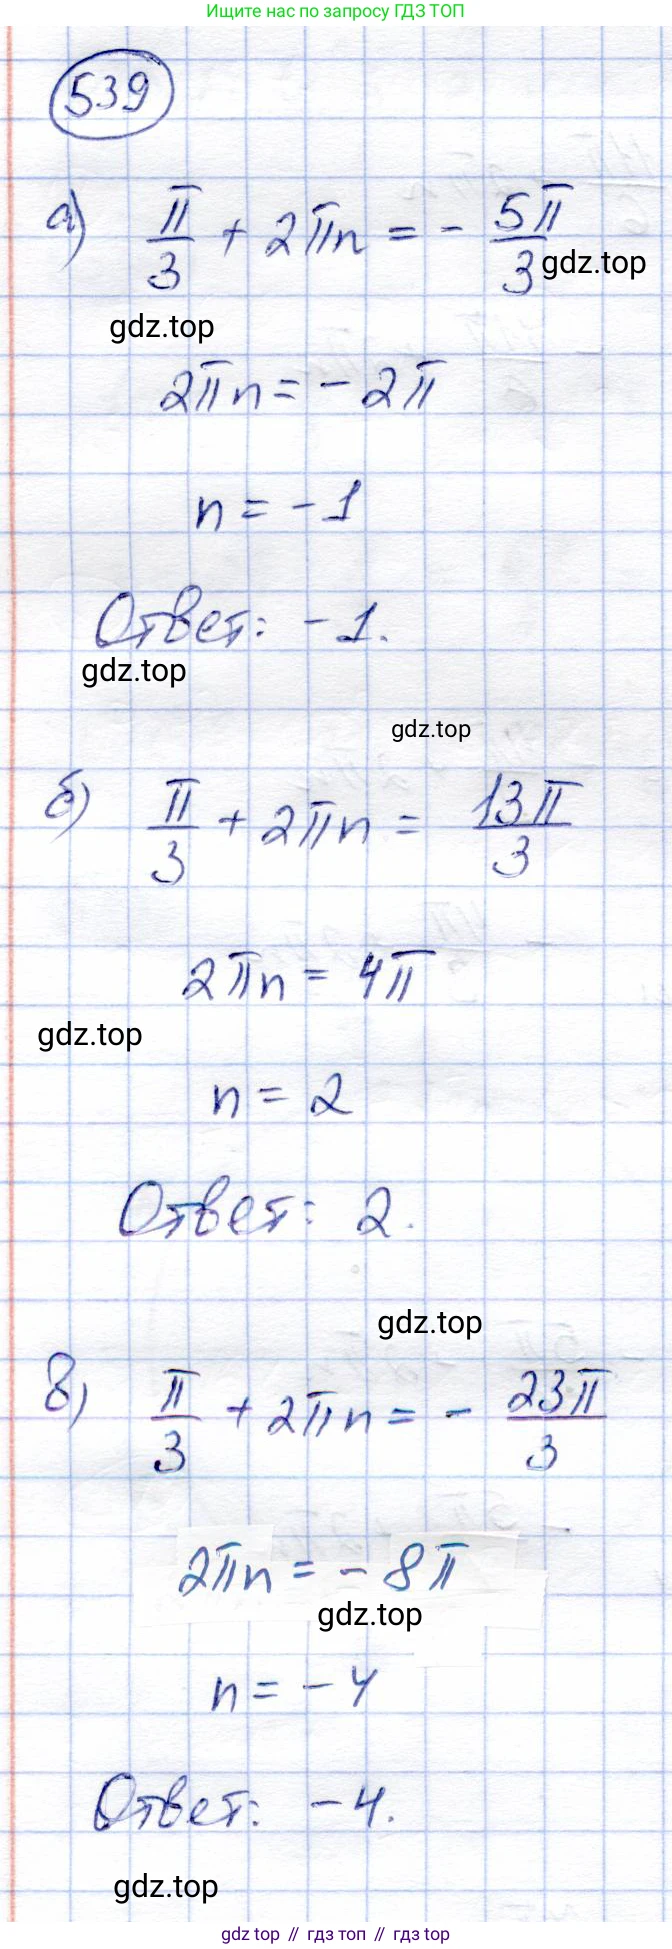 Ищите нас по запросу ГДЗ ТОП
539
а) π/3 + 2πn = - 5π/3
gdz.top
gdz.top
2πn = - 2π
n = - 1
Ответ: - 1.
gdz.top
gdz.top
б) π/3 + 2πn = 13π/3
2πn = 4π
gdz.top
n = 2
Ответ: 2.
gdz.top
в) π/3 + 2πn = - 23π/3
2πn = - 8π
gdz.top
n = - 4
Ответ: - 4.
gdz.top
gdz top // гдз топ // гдз top